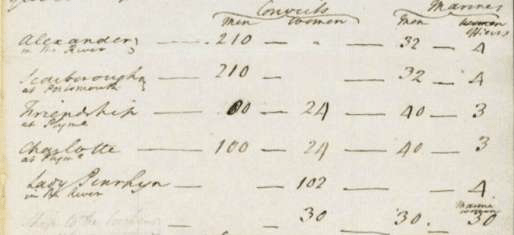 Convicts Marines
men women men women
officers
Alexander 210 " 32 4
in the River
Scarborough 210 32 4
at Portsmouth
Friendship 80 24 40 3
at Plymo
Charlotte 100 24 40 3
at Plymo
Lady Penrhyn 102 4
in the River
Marine
women
Ship to be 30 30 30